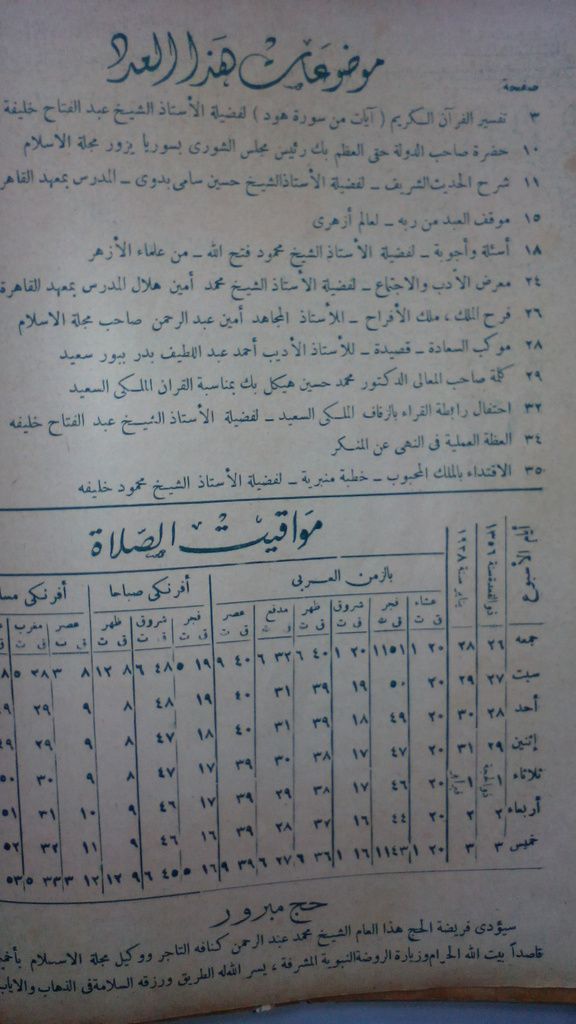 موضوعات هذا العدد
صفحة
٣ تفسير القرآن الكريم ( آيات من سورة هود ) لفضيلة الأستاذ الشيخ عبد الفتاح خليفة
١٠ حضرة صاحب الدولة حقى العظم بك رئيس مجلس الشورى بسوريا يزور مجلة الاسلام
١١ شرح الحديث الشريف ــ لفضيلة الأستاذ الشيخ حسين سامى بدوى ــ المدرس بمعهد القاهر
١٥ موقف العبد من ربه ــ لعالم أزهرى
١٨ أسئلة وأجوبة ــ لفضيلة الأستاذ الشيخ محمود فتح الله ــ من علماء الأزهر
٢٤ معرض الأدب والاجتماع ــ لفضيلة الأستاذ الشيخ محمد أمين هلال المدرس بمعهد القاهرة
٢٦ فرح الملك ، ملك الأفراح ــ للأستاذ المجاهد أمين عبد الرحمن صاحب مجلة الاسلام
٢٨ موكب السعادة ــ قصيدة ــ للأستاذ الأديب أحمد عبد اللطيف بدر ببور سعيد
٢٩ كلمة صاحب المعالى الدكتور محمد حسين هيكل بك بمناسبة القران الملكى السعيد
٣٢ احتفال رابطة القراء بالزفاف الملكى السعيد ــ لفضيلة الأستاذ الشيخ عبد الفتاح خليفه
٣٤ العظة العملية فى النهى عن المنكر
٣٥ الاقتداء بالملك المحبوب ــ خطبة منبرية ــ لفضيلة الأستاذ الشيخ محمود خليفه
مواقيت الصلاة
ذو القعدة سنة ١٣٥٦ يناير سنة ١٩٣٨ بالزمن العربى أفرنكى صباحا أفرنكى مسا
عشاء فجر شروق ظهر مدفع عصر فجر شروق ظهر عصر مغرب
ق ت ق ت ق ت ق ت ق ت ق ت ق ت ق ت ق ت
جمعه ٢٦ ٢٨ ٢٠ ١ ٥١ ١١ ٢٠ ١ ٤٠ ٦ ٣٢ ٦ ٤٠ ٩ ١٩ ٥ ٤٨ ٦ ٨ ١٢ ٨ ٣ ٢٨ ٥
سبت ٢٧ ٢٩ ٢٠ ٥٠ ١٩ ٣٩ ٣١ ٤٠ ١٩ ٤٨ ٨ ٩ ٢٩
أحد ٢٨ ٣٠ ٢٠ ٤٩ ١٨ ٣٩ ٣١ ٤٠ ١٨ ٤٧ ٨ ٩ ٢٩ ٤٩
إثنين ٢٩ ٣١ ٢٠ ٤٧ ١٧ ٣٨ ٣٠ ٣٩ ١٧ ٤٧ ٨ ٩ ٣٠ ٥٠
ثلاثاء ١ ذو الحجة ١ فبراير ٢٠ ٤٦ ١٧ ٣٨ ٢٩ ٣٩ ١٧ ٤٦ ٩ ١٠ ٣١ ٥١
أربعاء ٢ ٢ ٢٠ ٤٤ ١٦ ٣٧ ٢٨ ٣٩ ١٦ ٤٦ ٩ ١١ ٣٢ ٥٢
خميس ٣ ٣ ٢٠ ١ ٤٣ ١١ ١٦ ١ ٣٦ ٦ ٢٧ ٦ ٣٩ ٩ ١٦ ٥ ٤٥ ٦ ٩ ١٢ ١٢ ٣ ٣٣ ٥ ٥٣
حج مبرور
سيؤدى فريضة الحج هذا العام الشيخ محمد عبد الرحمن كنافه التاجر ووكيل مجلة الاسلام
قاصداً بيت الله الحرام وزيارة الروضة النبوية المشرفة ، يسر الله له الطريق ورزقه السلامة فى الذهاب والاياب